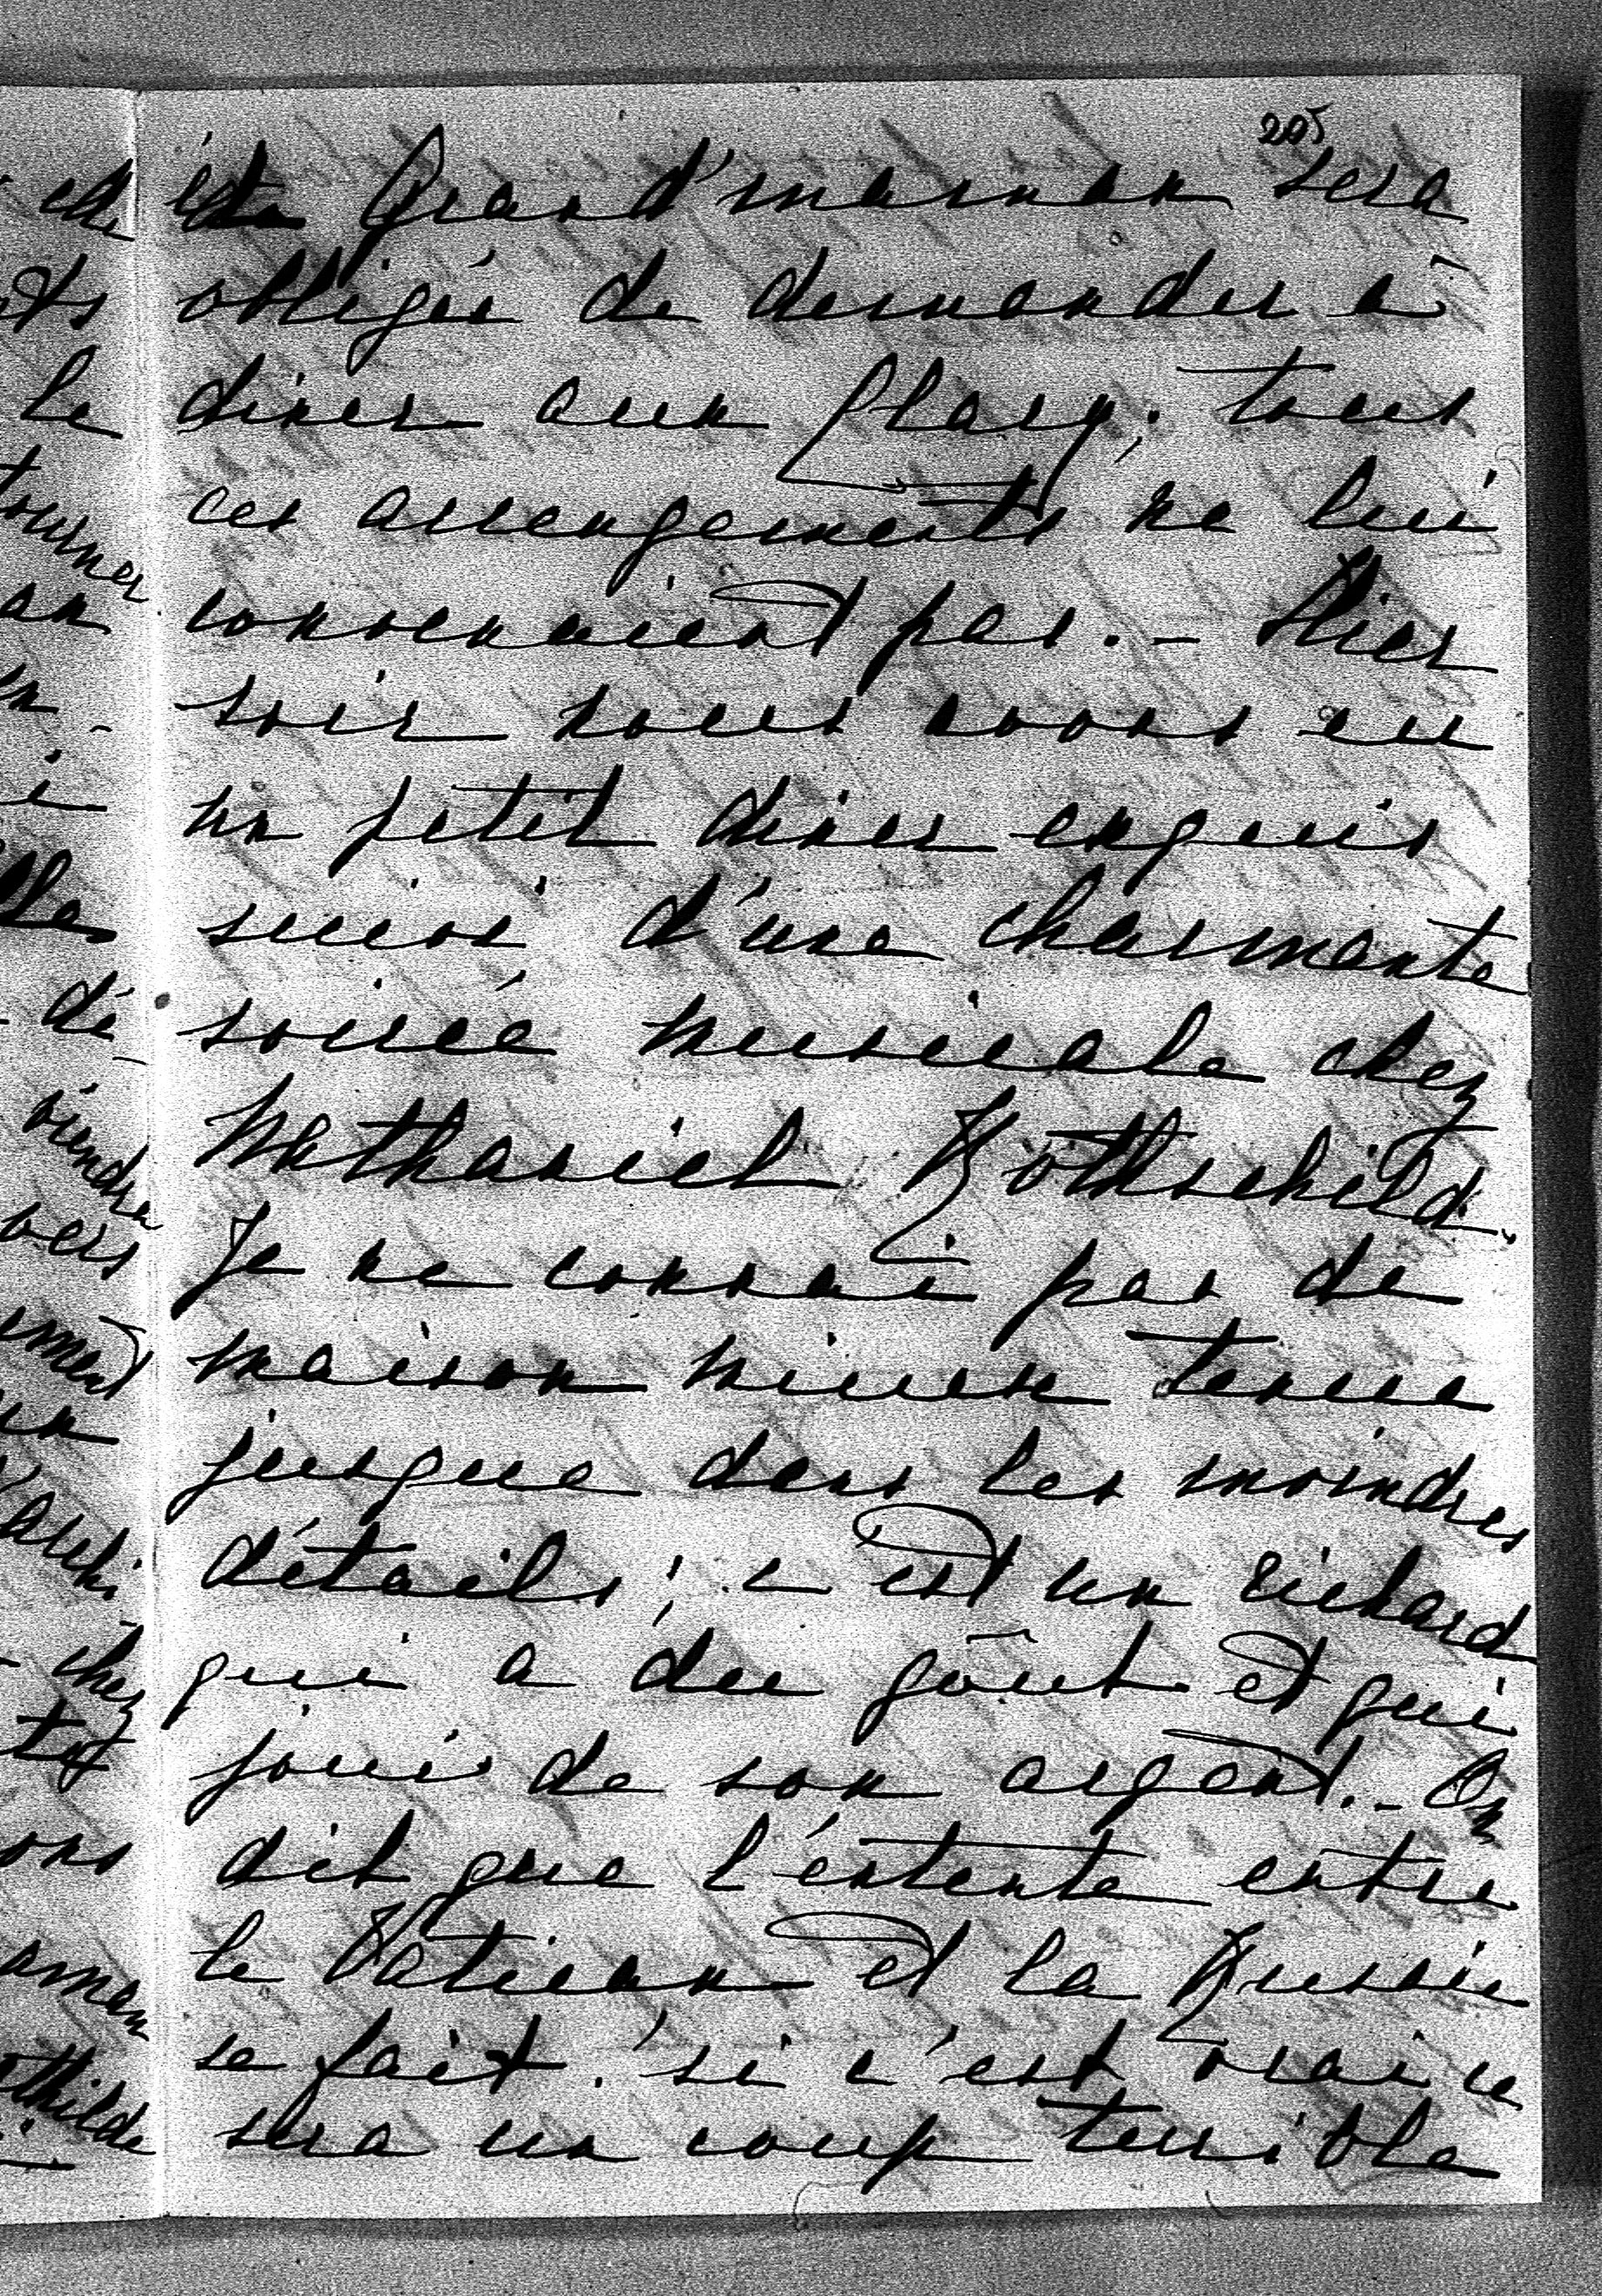 205
Grand'maman sera
obligée de demander à
diner aux Clary; tous
ces arrengements ne lui
convenaient pas. - Hier
soir nous avons eu
un petit diner exquis
suivi d'une charmante
soirée musicale chez
Nathaniel Rothschild.
Je ne connai pas de
maison mieux tenue
jusque dans les moindres
détails; c'est un richard
qui a du goût et qui
joui de son argent. - On
dit que l'entente entre
le Vatican et la Russie
se fait. si c'est vrai ce
sera un coup terrible
le
tourner
en
dé
viendra
vers
chez